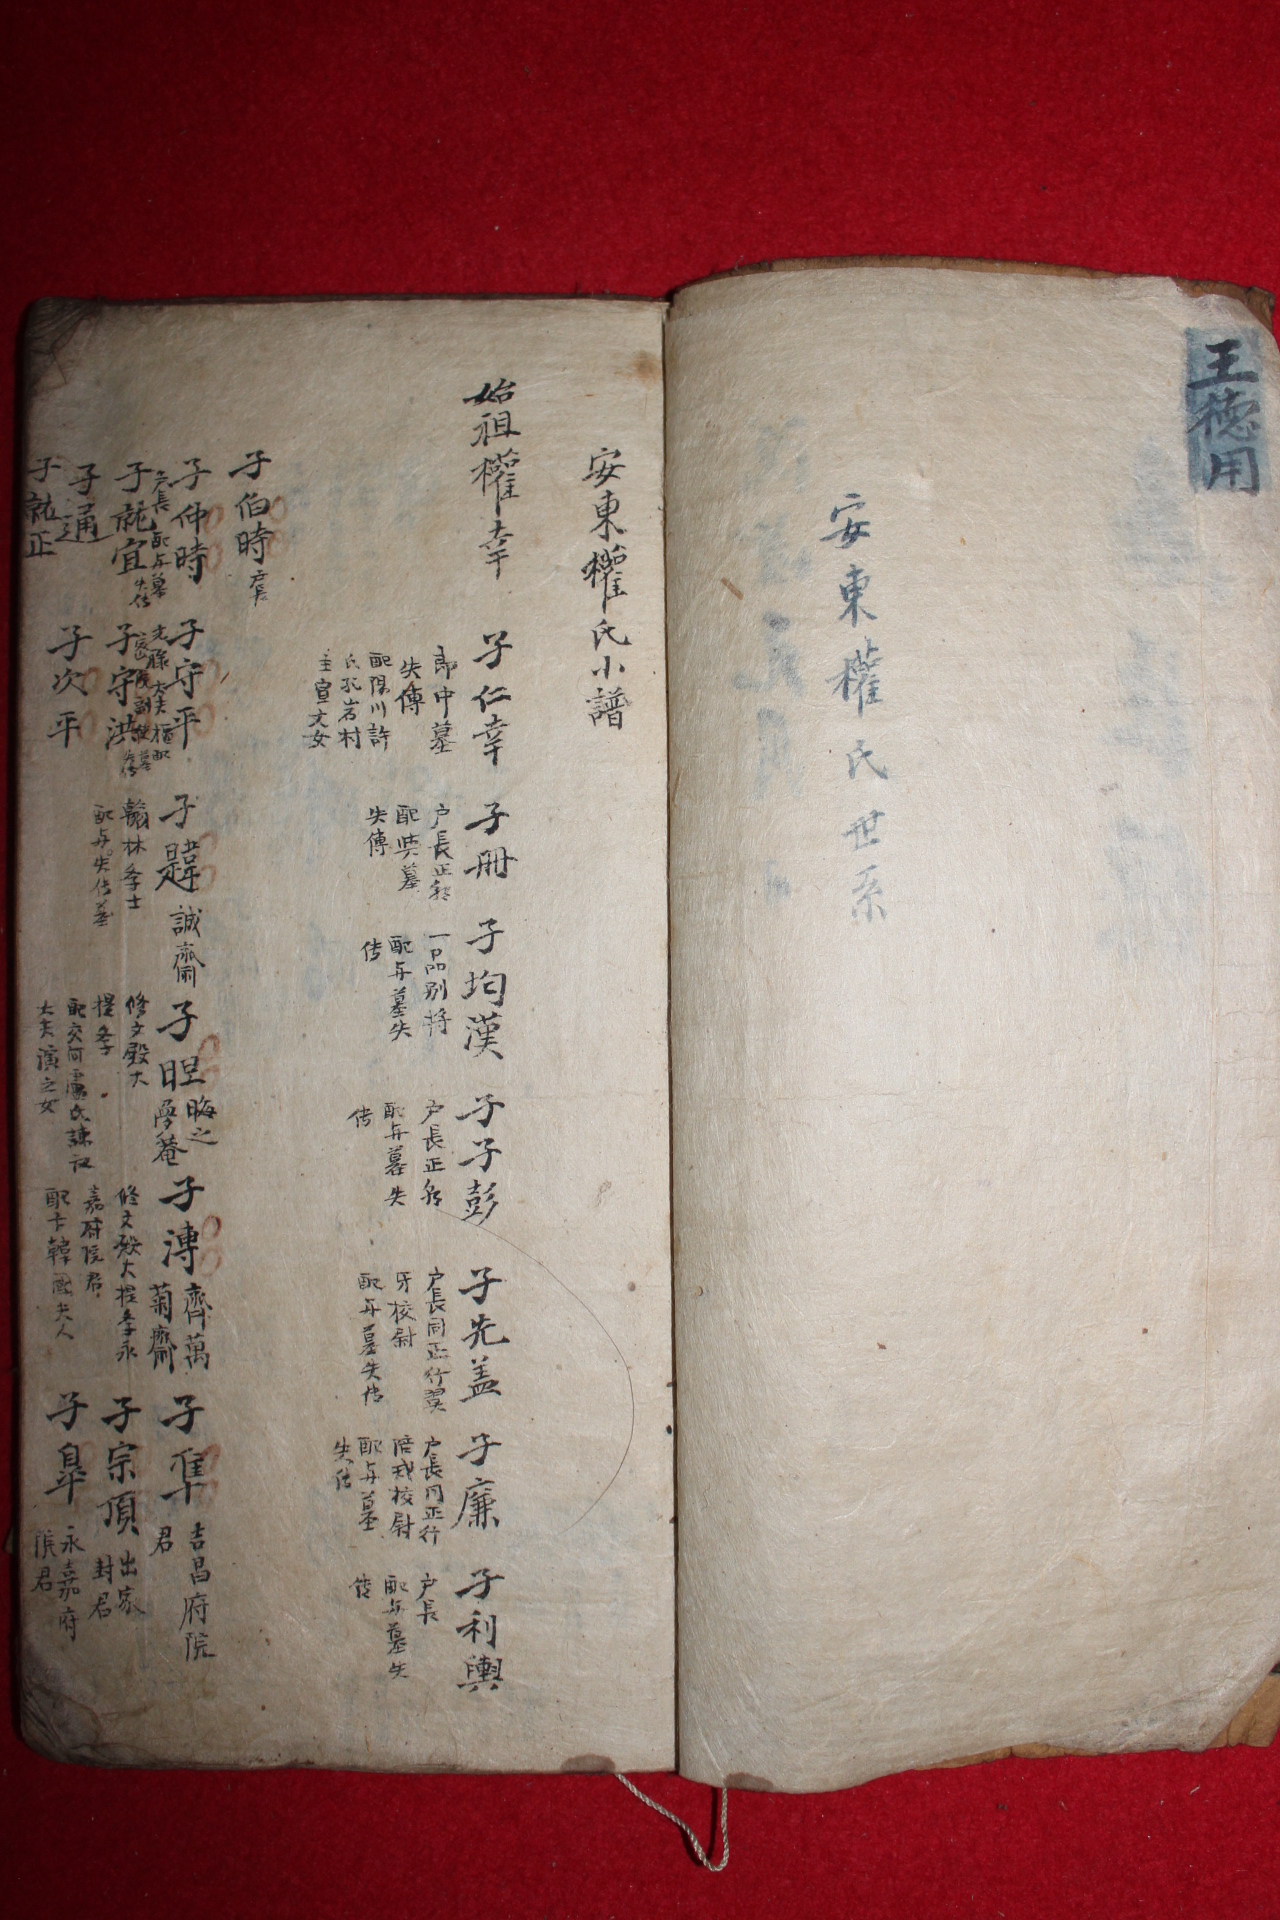 王德用
安東權氏世系
安東權氏小譜
始祖權幸
子仁幸
郎中墓
失傳
配陽川許
氏孔岩村
主宣文女
子冊
户長正
配與墓
失傳
子均漢
一品别将
配与墓失
传
子子彭
户長正
配与墓失
传
子先盖
户長同正行翼
牙校尉
配与墓失传
子廉
户長同正行
陪戎校尉
配与墓
失传
子利輿
户長
配与墓失
传
子伯時
户長
子仲時
户長配与墓失传
子就宜
子通
子就正
子守平
子守洪
子次平
子韙
誠齋
翰林李士
配与失传墓
子㫜
晦之
夢菴
修文殿大
提李
大夫演之女
子溥
齊萬
菊齋
修文殿大提李永
嘉府院君
配卞韓國夫人
子準
吉昌府院
君
子宗頂
出家
封君
子皐
永嘉府
院君